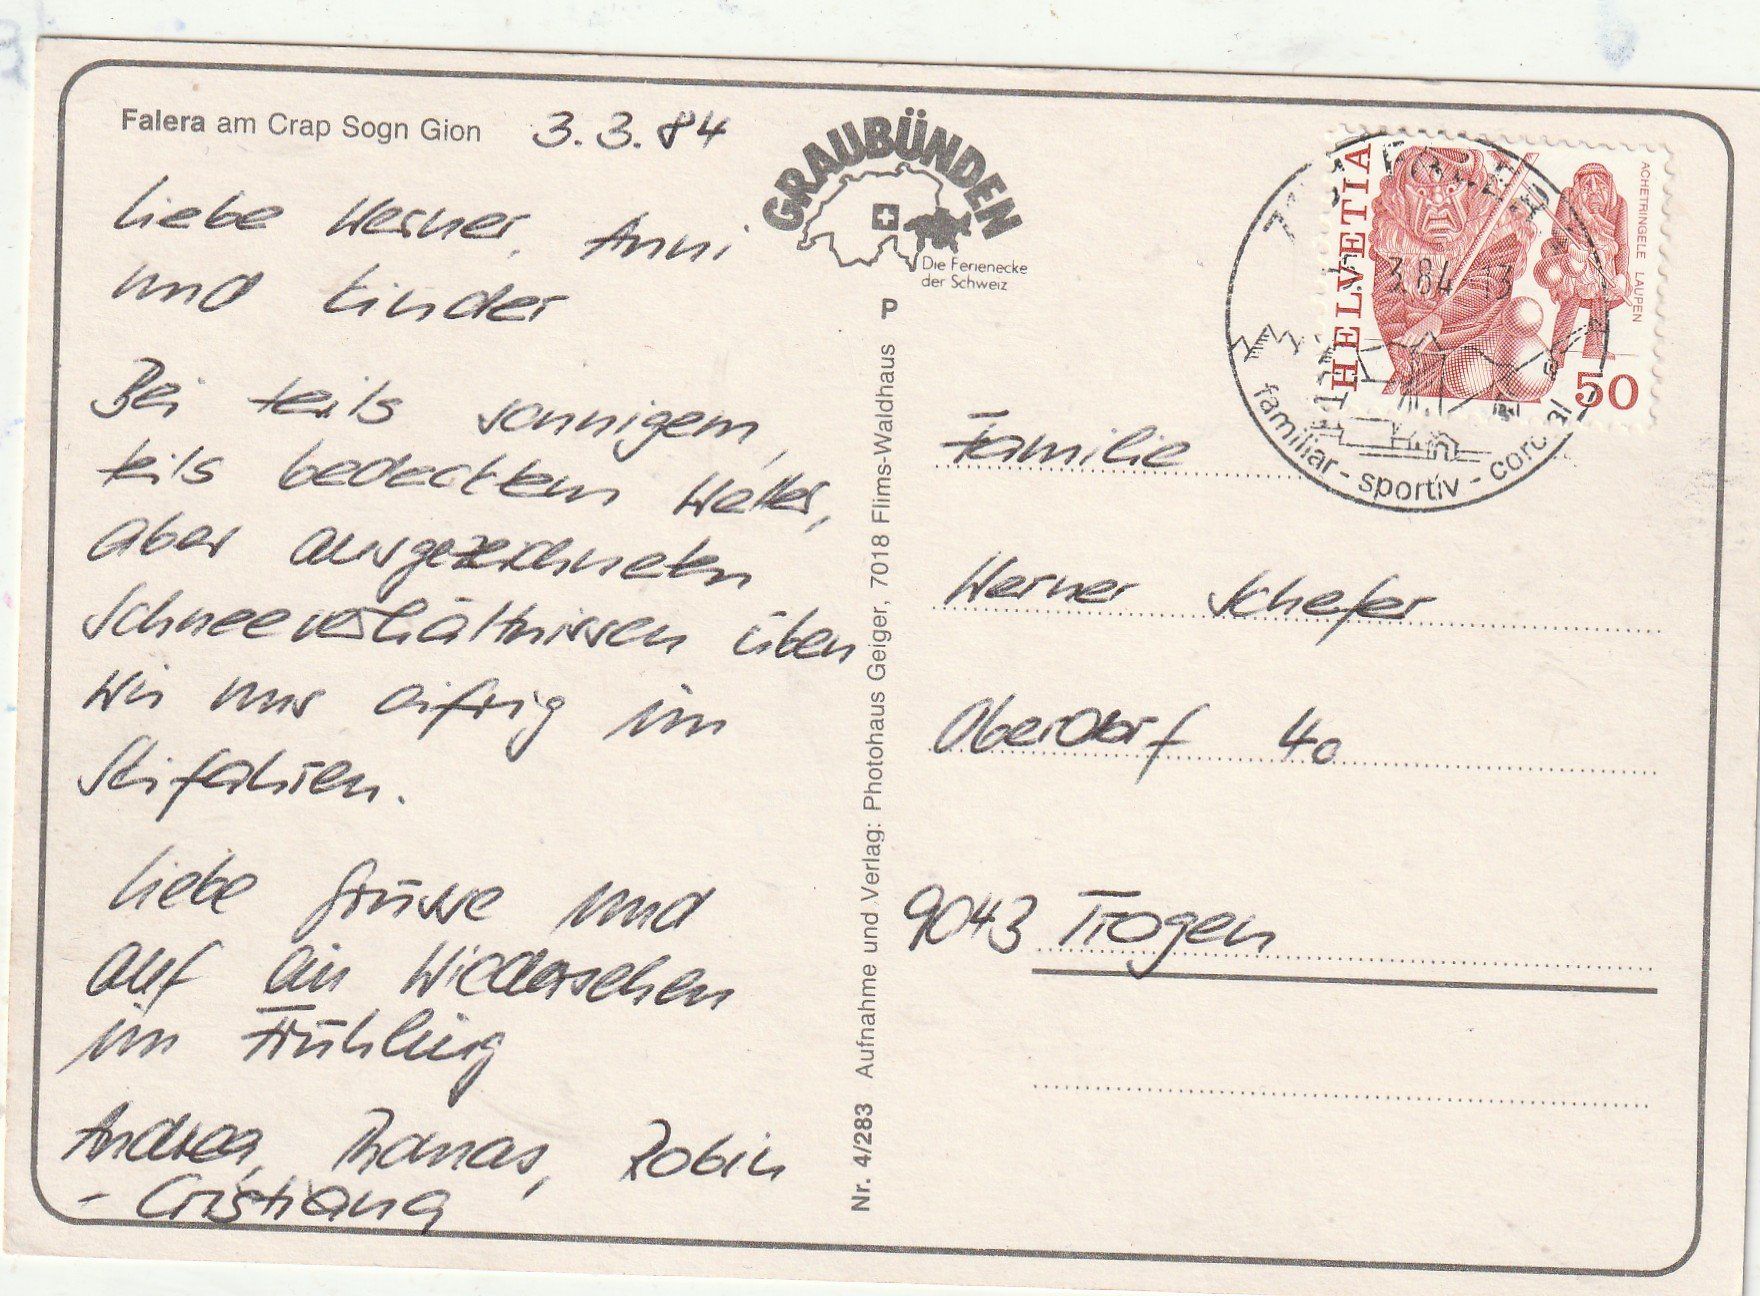 Falera am Crap Sogn Gion 3.3.84
Liebe Werner, Anni
und Kinder
Bei teils sonnigem,
teils bedecktem Wetter,
aber ausgezeichneten
Schneeverhältnissen üben
wir uns eifrig im
Skifahren.
Liebe Grüsse und
auf ein Wiedersehen
im Frühling
Andrea, Thomas, Robin
- Cristiana
GRAUBÜNDEN
Die Ferienecke
der Schweiz
P
Nr. 4/283 Aufnahme und Verlag: Photohaus Geiger, 7018 Flims-Waldhaus
HELVETIA
ACHETRINGELE LAUPEN
50
3.84-13
familiar - sportiv - cordial
Familie
Werner Schefer
Oberdorf 40
9043 Trogen